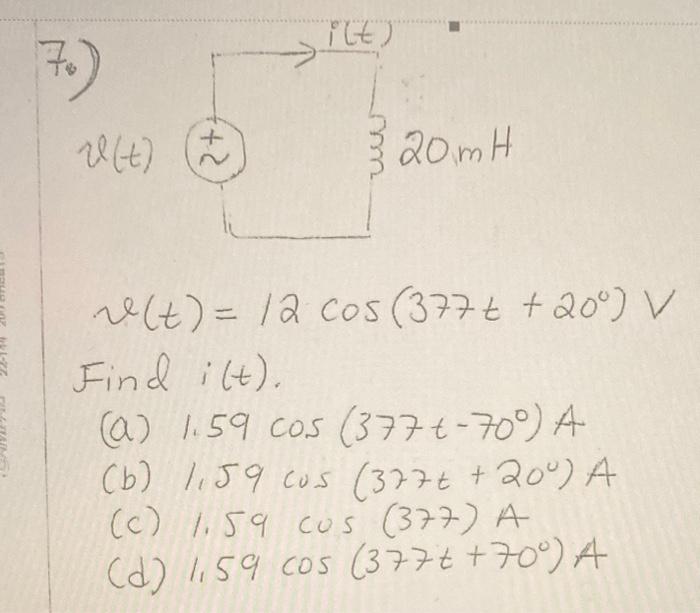 7.)
i(t)
v(t)
+
~
20 mH
v(t) = 12 cos(377t + 20°) V
Find i(t).
(a) 1.59 cos (377t - 70°) A
(b) 1.59 cos (377t + 20°) A
(c) 1.59 cos (377) A
(d) 1.59 cos (377t + 70°) A